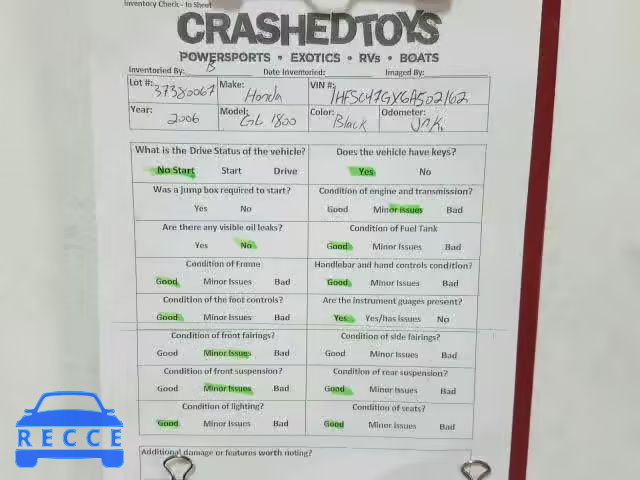 Inventory Check - In Sheet
CRASHEDTOYS
POWERSPORTS • EXOTICS • RVs • BOATS
Inventoried By: B Date Inventoried: Imaged By:
Lot #: 37380067 Make: Honda VIN #: 1HFSC47GX6A502162
Year: 2006 Model: GL 1800 Color: Black Odometer: Unk.
What is the Drive Status of the vehicle? Does the vehicle have keys?
No Start Start Drive Yes No
Was a jump box required to start? Condition of engine and transmission?
Yes No Good Minor Issues Bad
Are there any visible oil leaks? Condition of Fuel Tank
Yes No Good Minor Issues Bad
Condition of Frame Handlebar and hand controls condition?
Good Minor Issues Bad Good Minor Issues Bad
Condition of the foot controls? Are the instrument guages present?
Good Minor Issues Bad Yes Yes/has issues No
Condition of front fairings? Condition of side fairings?
Good Minor Issues Bad Good Minor Issues Bad
Condition of front suspension? Condition of rear suspension?
Good Minor Issues Bad Good Minor Issues Bad
Condition of lighting? Condition of seats?
Good Minor Issues Bad Good Minor Issues Bad
Additional damage or features worth noting?
RECCE